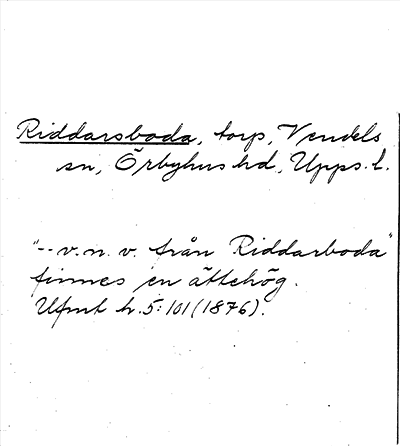 Riddarsboda, torp, Vendels
sn, Örbyhus hd, Upps. l.
"-- v.n.v. från Riddarboda"
finnes en ättehög.
Ufmt h. 5:101 (1876).